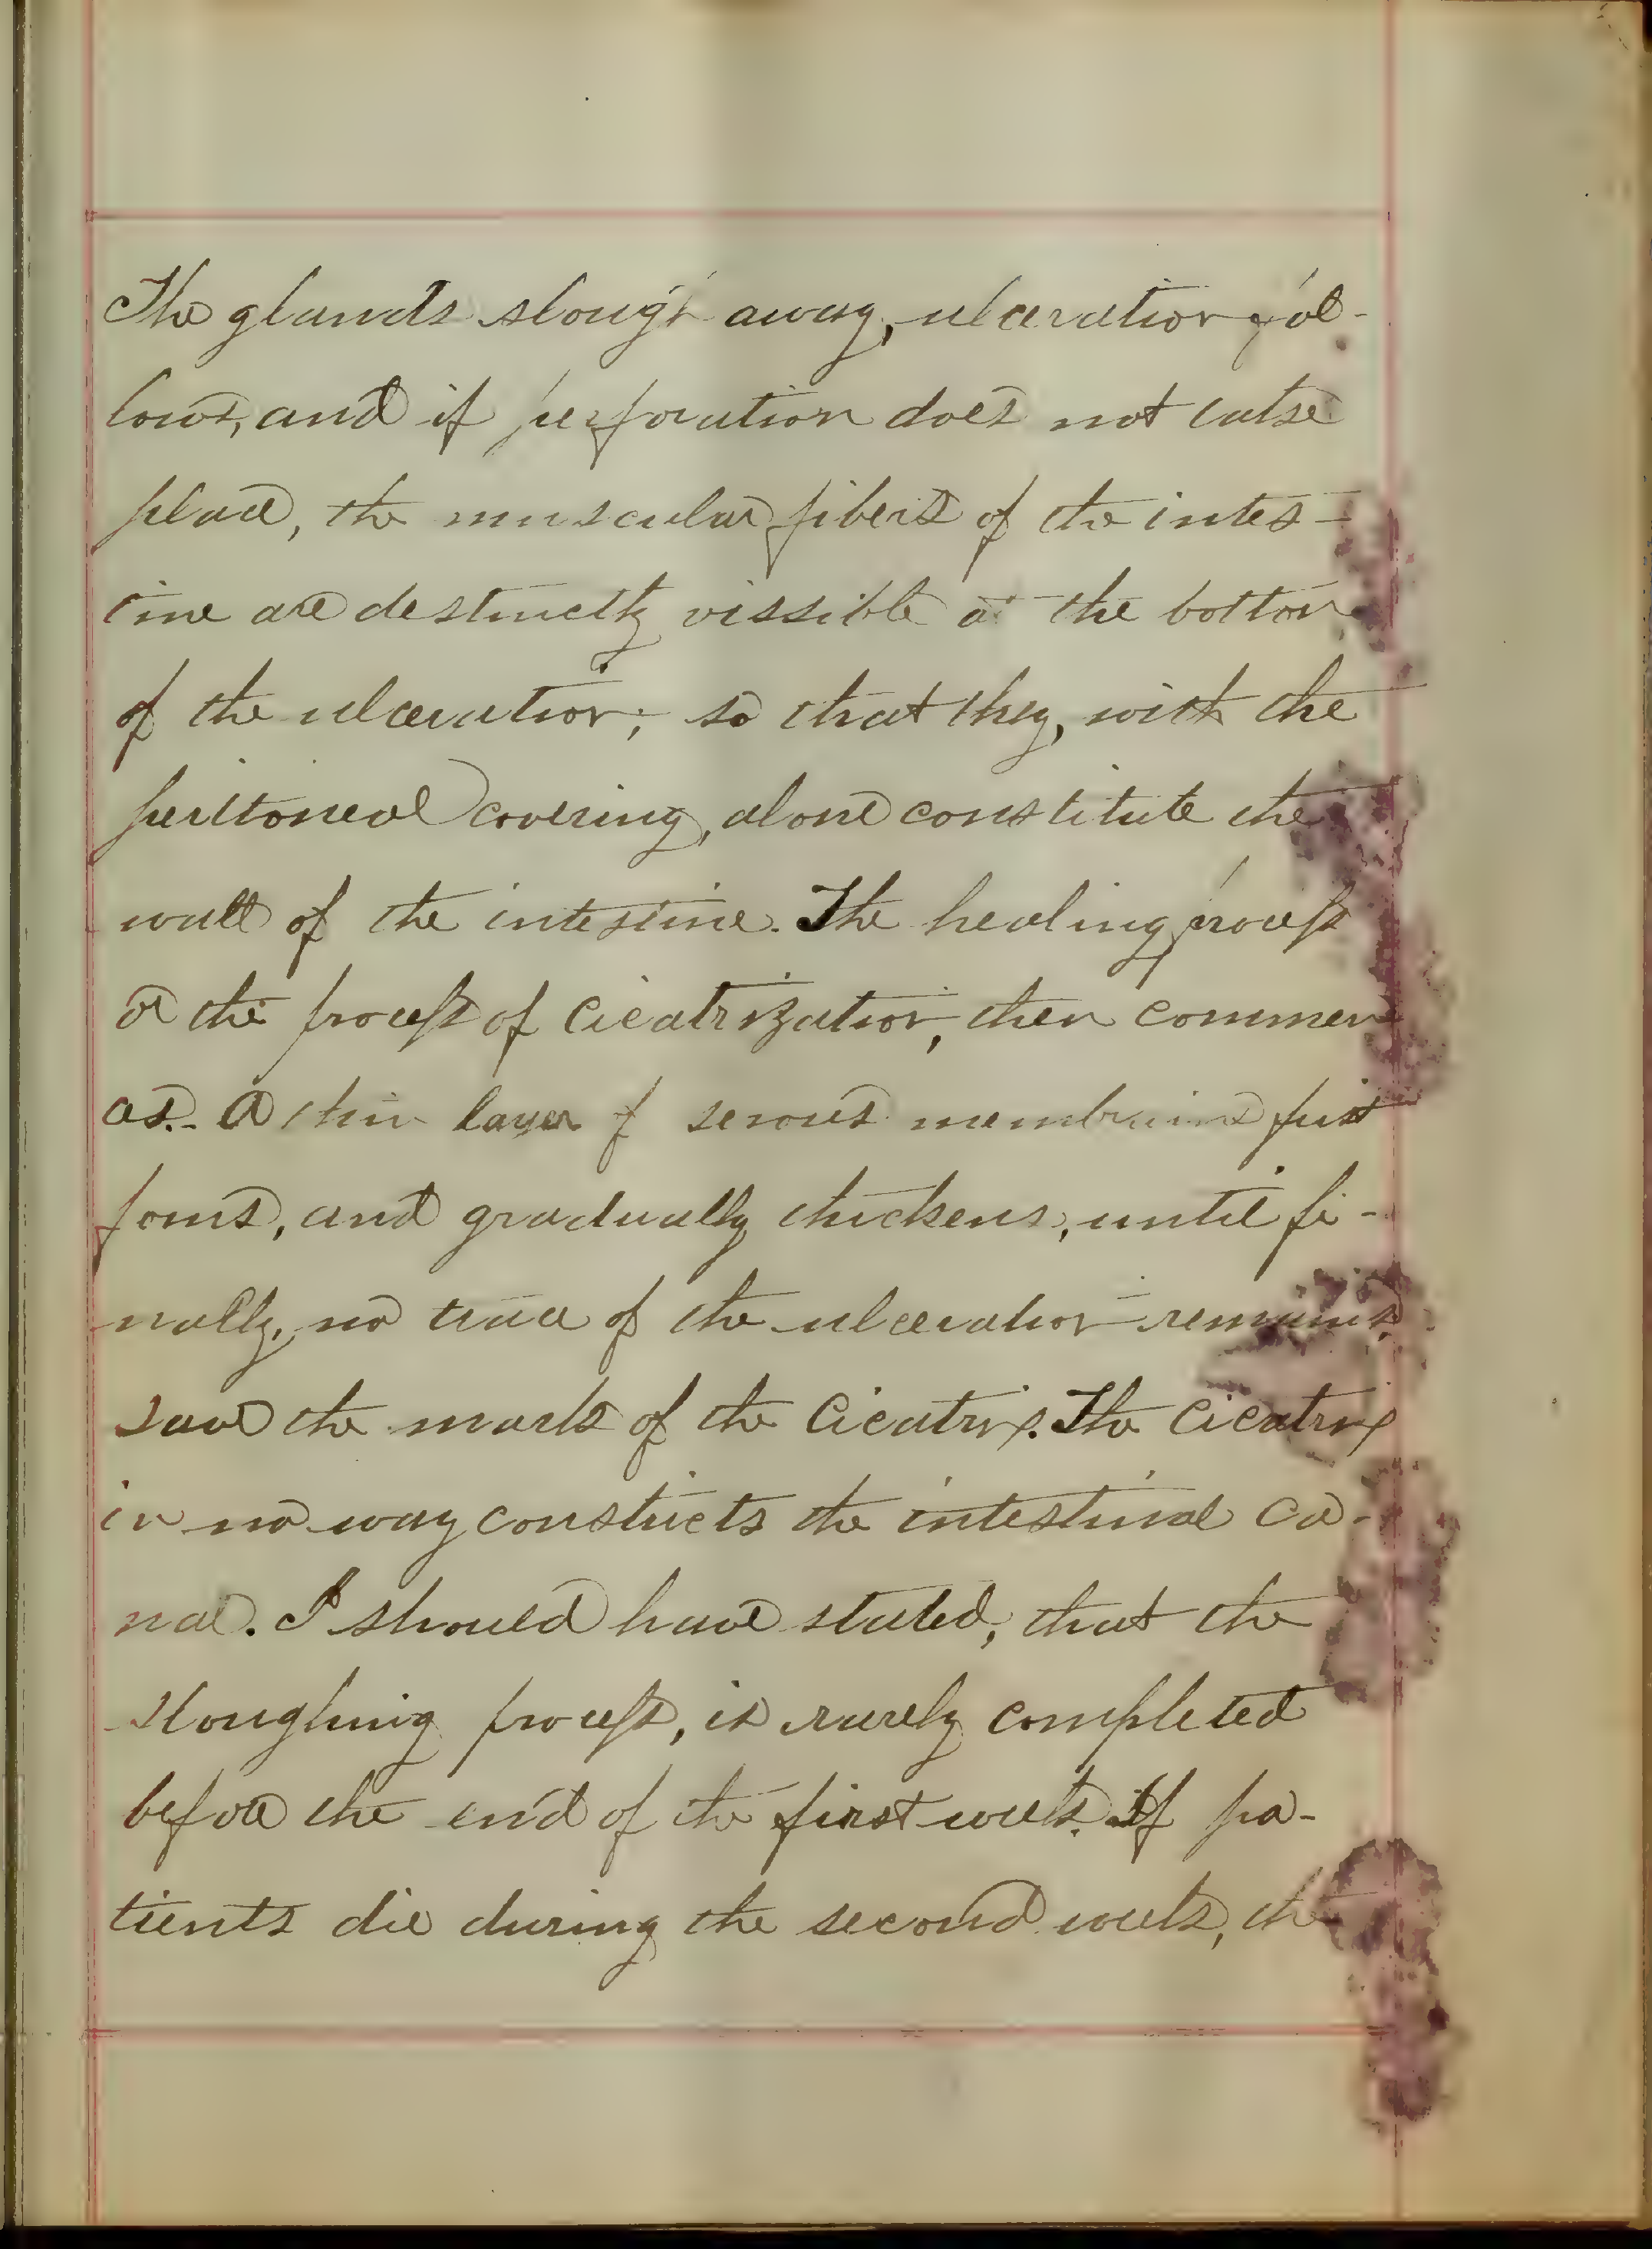 The glands slough away, ulceration fol-
lows, and if perforation does not take
place, the muscular fibers of the intes-
tine are destinctly vissible at the bottom
of the ulceration; so that they, with the
peritoneal covering, alone constitute the
wall of the intestine. The healing process
or the process of Cicatrization, then commen
ces. A thin layer of serous membrane first
forms, and gradually thickens, until fi-
nally, no trace of the ulceration remains,
save the mark of the Cicatrix. The Cicatrix
in no way constricts the intestinal ca-
nal. I should have stated, that the
sloughing process, is rarely completed
before the end of the first week. If pa-
tients die during the second week, the